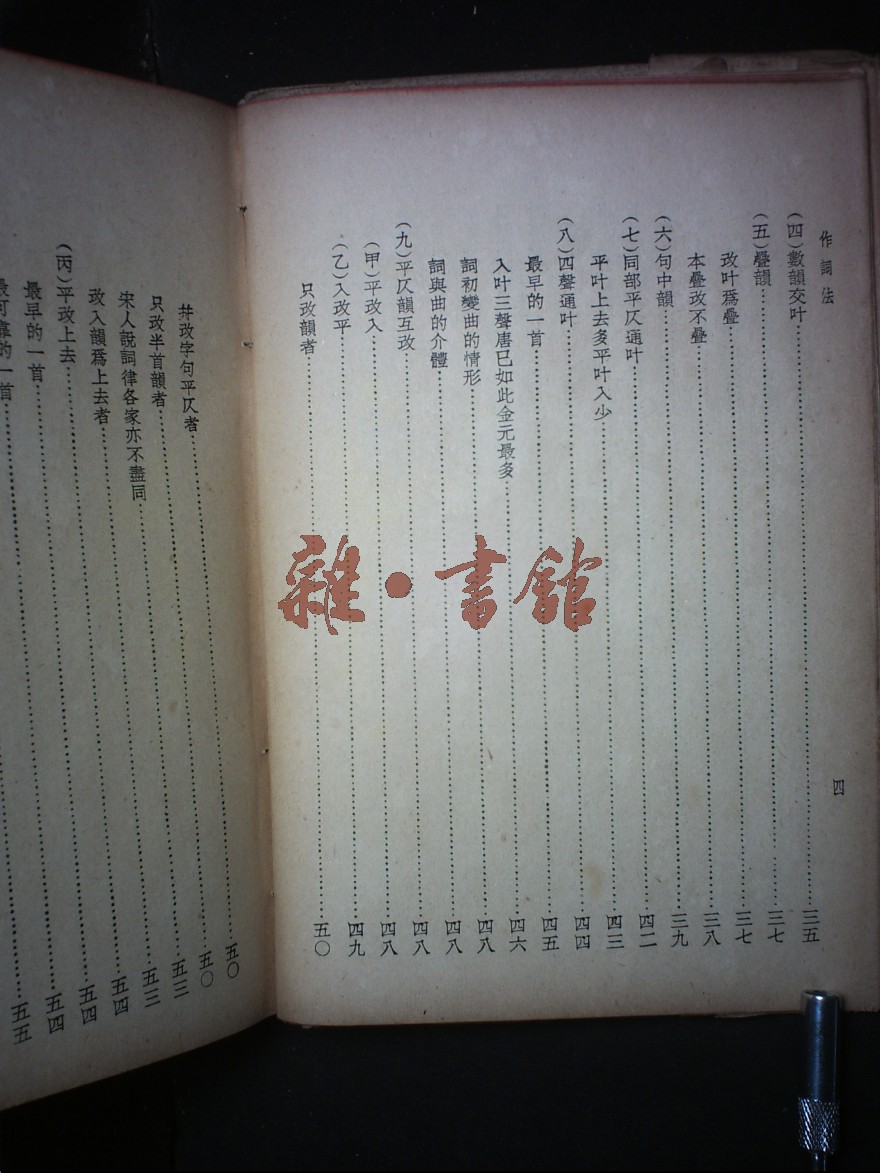 作詞法
四
(四)數韻交叶……三五
(五)疊韻……三七
改叶爲疊……三七
本疊改不疊……三八
(六)句中韻……三九
(七)同部平仄通叶……四二
平叶上去多平叶入少……四三
(八)四聲通叶……四四
最早的一首……四五
入叶三聲唐已如此金元最多……四六
詞初變曲的情形……四八
詞與曲的介體……四八
(九)平仄韻互改……四八
(甲)平改入……四八
(乙)入改平……四九
只改韻者……五〇
幷改字句平仄者……五〇
只改半首韻者……五〇
宋人說詞律各家亦不盡同……五三
改入韻爲上去者……五三
(丙)平改上去……五四
最早的一首……五四
可靠的一首……五四
五五
雜·書館